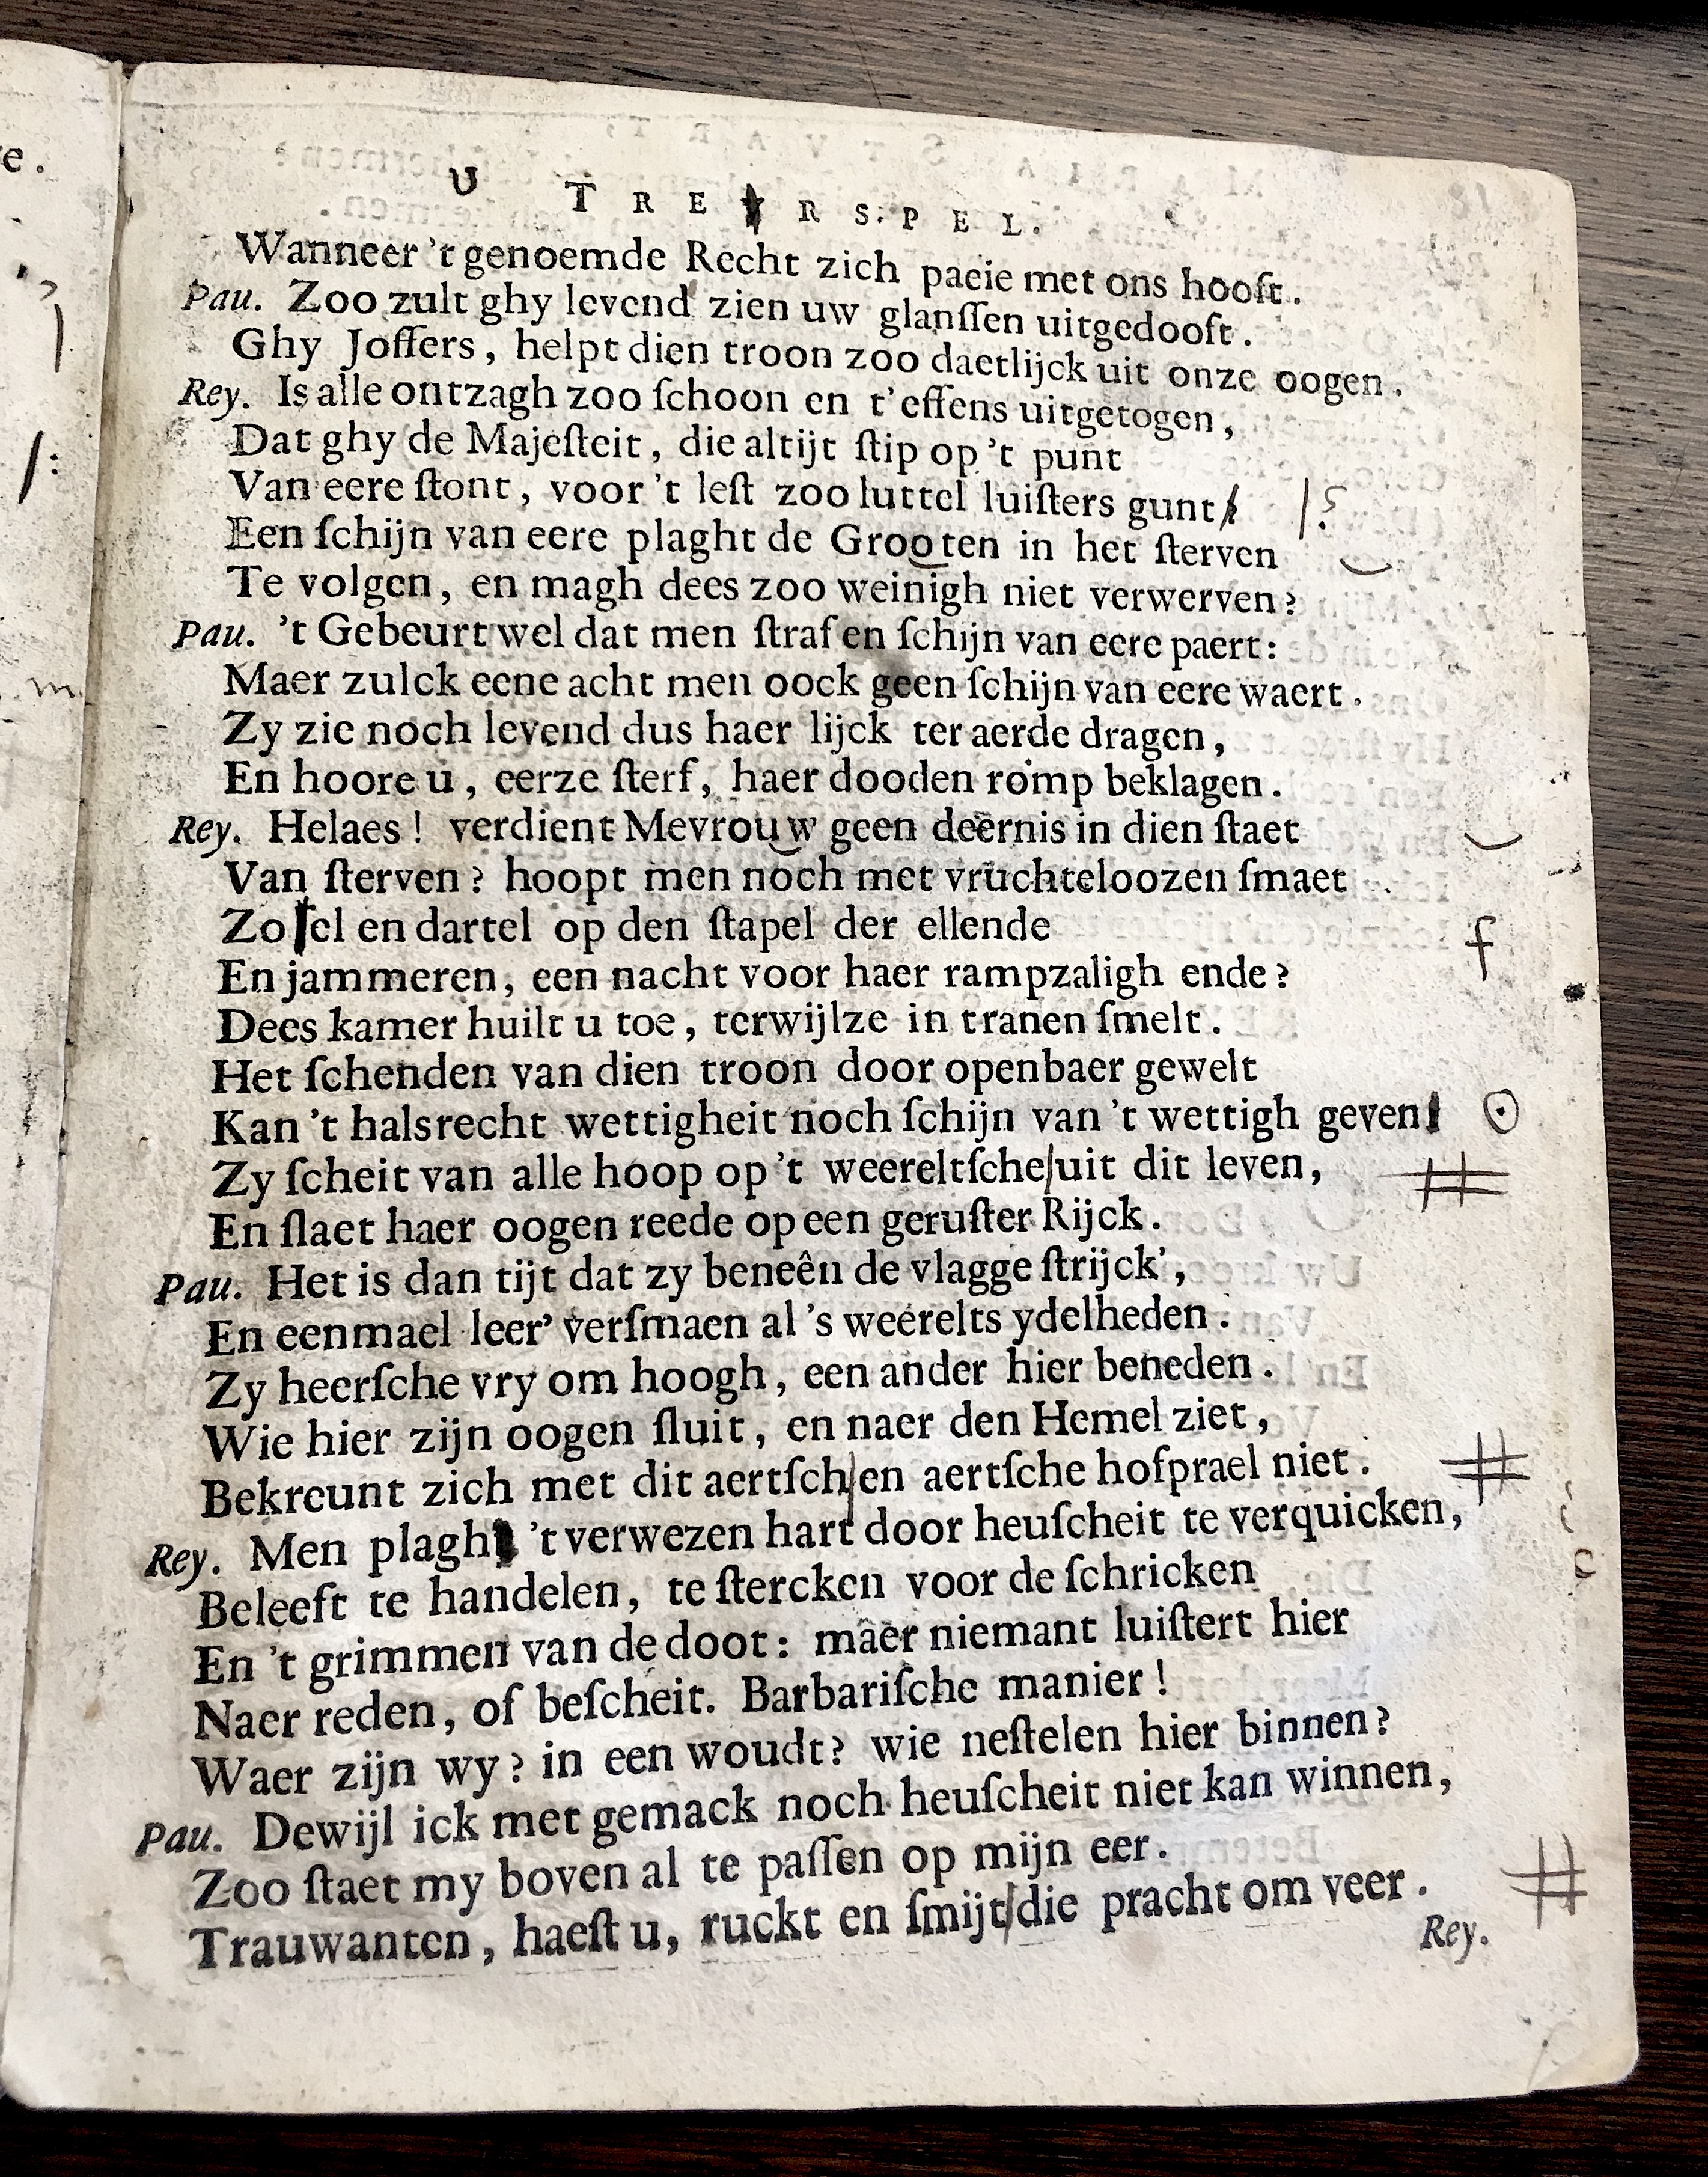 U
TREVRSPEL.
Wanneer 't genoemde Recht zich paeie met ons hooft.
Pau. Zoo zult ghy levend zien uw glanſſen uitgedooft.
Ghy Joffers, helpt dien troon zoo daetlijck uit onze oogen.
Rey. Is alle ontzagh zoo ſchoon en t'effens uitgetogen,
Dat ghy de Majeſteit, die altijt ſtip op 't punt
Van eere ſtont, voor 't leſt zoo luttel luiſters gunt |?
Een ſchijn van eere plaght de Grooten in het ſterven
Te volgen, en magh dees zoo weinigh niet verwerven?
Pau. 't Gebeurt wel dat men ſtraf en ſchijn van eere paert:
Maer zulck eene acht men oock geen ſchijn van eere waert.
Zy zie noch levend dus haer lijck ter aerde dragen,
En hoore u, eerze ſterf, haer dooden romp beklagen.
Rey. Helaes! verdient Mevrouw geen deernis in dien ſtaet
Van ſterven? hoopt men noch met vruchteloozen ſmaet
Zo fel en dartel op den ſtapel der ellende f
En jammeren, een nacht voor haer rampzaligh ende?
Dees kamer huilt u toe, terwijlze in tranen ſmelt.
Het ſchenden van dien troon door openbaer gewelt
Kan 't halsrecht wettigheit noch ſchijn van 't wettigh geven ⊙
Zy ſcheit van alle hoop op 't weereltſche|uit dit leven, #
En ſlaet haer oogen reede op een geruſter Rijck.
Pau. Het is dan tijt dat zy beneên de vlagge ſtrijck',
En eenmael leer' verſmaen al 's weerelts ydelheden.
Zy heerſche vry om hoogh, een ander hier beneden.
Wie hier zijn oogen ſluit, en naer den Hemel ziet,
Bekreunt zich met dit aertſch|en aertſche hofprael niet. #
Rey. Men plagh 't verwezen hart door heuſcheit te verquicken,
Beleeft te handelen, te ſtercken voor de ſchricken
En 't grimmen van de doot: maer niemant luiſtert hier
Naer reden, of beſcheit. Barbariſche manier!
Waer zijn wy? in een woudt? wie neſtelen hier binnen?
Pau. Dewijl ick met gemack noch heuſcheit niet kan winnen,
Zoo ſtaet my boven al te paſſen op mijn eer.
Trauwanten, haeſt u, ruckt en ſmijt|die pracht om veer. #
Rey.